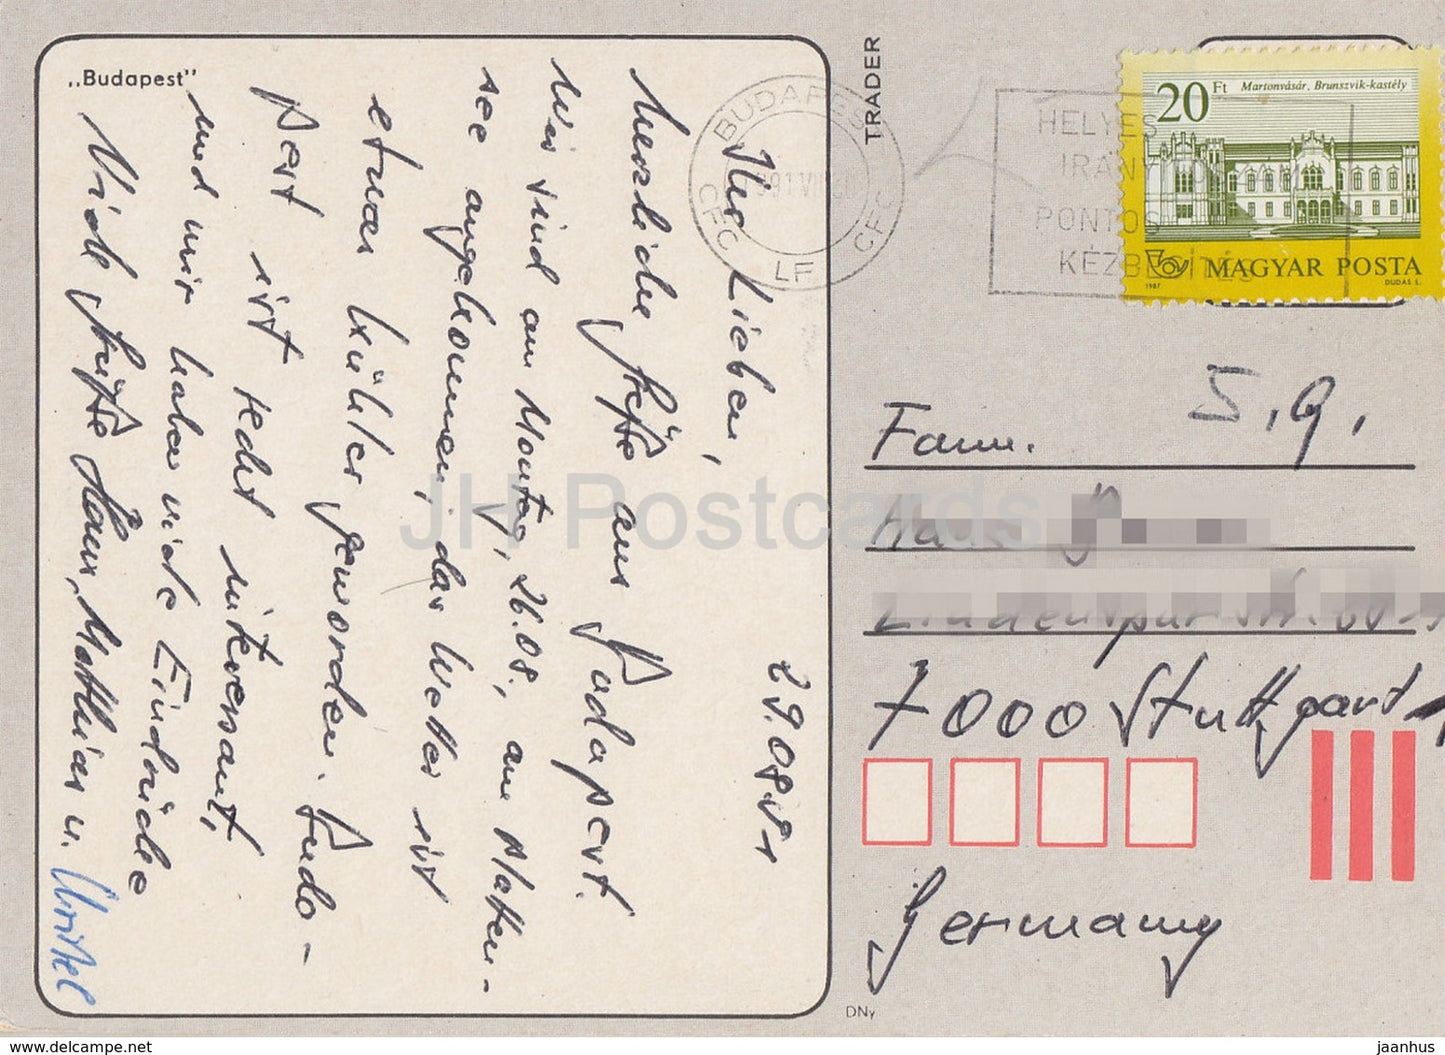 „Budapest”
29.08.91
Ihr Lieben,
herzliche Grüße aus Budapest.
Wir sind am Montag, 26.08, am Platten-
see angekommen, das Wetter ist
etwas kühler geworden. Buda-
pest ist sehr interessant,
und wir haben viele Eindrücke
Viele Grüße Hans, Matthias u.
TRADER
BUDAPEST
CFC LF CFC
HELYES
IRÁNYÍTÓSZÁM
PONTOS
KÉZBESÍTÉS
20 Ft Martonvásár, Brunszvik-kastély
MAGYAR POSTA
1987 DUDÁS L.
S. g.
Fam.
7000 Stuttgart 1
Germany
DNy
JH Postcards
www.delcampe.net
jaanhus